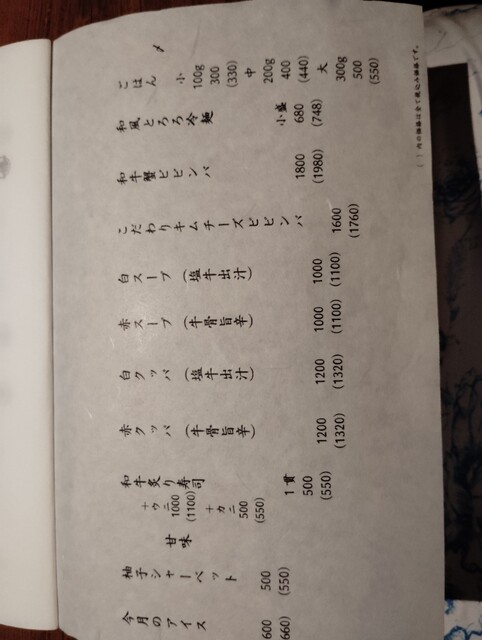 〆
ごはん 小 100g 300 (330) 中 200g 400 (440) 大 300g 500 (550)
和風とろろ冷麺 小盛 680 (748)
和牛蟹ビビンバ 1800 (1980)
こだわりキムチーズビビンバ 1600 (1760)
白スープ (塩牛出汁) 1000 (1100)
赤スープ (牛骨旨辛) 1000 (1100)
白クッパ (塩牛出汁) 1200 (1320)
赤クッパ (牛骨旨辛) 1200 (1320)
和牛炙り寿司 1貫 500 (550)
+ウニ 1000 (1100) +カニ 500 (550)
甘味
柚子シャーベット 500 (550)
今月のアイス 600 (660)
( )内の価格は全て税込み価格です。